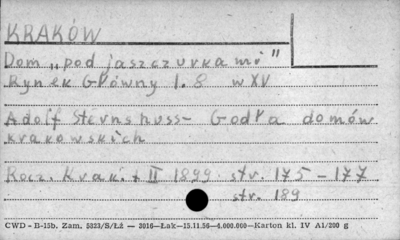 KRAKÓW
Dom „pod jaszczurkami"
Rynek Główny l. 8 w XV
Adolf Sternshuss - Godła domów
krakowskich
Rocz. Krak. t II 1899 str. 175 - 177
str. 189
CWD - B-15b. Zam. 5323/S/Łż — 3016—Łak—15.11.56—4.000.000—Karton kl. IV A1/200 g